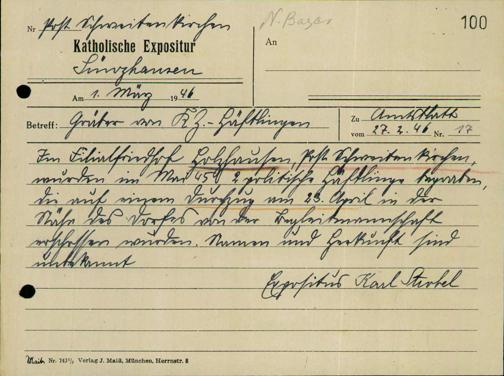 N. Bazar
100
Nr Post Schweitenkirchen
Katholische Expositur
Sünzhausen
Am 1. März 1946
An
Betreff: Gräber von KZ.-Häftlingen
Zu Amtsblatt
vom 27.2.46 Nr. 17
Im Filialfriedhof Holzhausen, Post Schweitenkirchen,
wurden im Mai 45 2 politische Häftlinge begraben,
die auf einem Durchzug am 29. April in der
Nähe des Dorfes von der Begleitmannschaft
erschossen wurden. Namen und Herkunft sind
unbekannt
Expositus Karl Strobel
Maiß Nr. 743½, Verlag J. Maiß, München, Herrnstr. 8